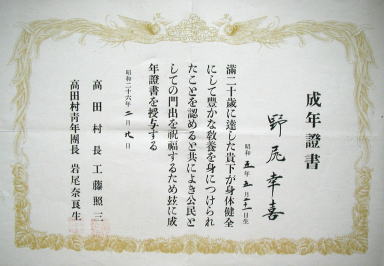 成年證書
野尻幸喜
昭和五年五月二十一日生
滿二十歳に達した貴下が身体健全
にして豊かな敎養を身につけられ
たことを認めると共によき公民と
しての門出を祝福するため玆に成
年證書を授与する
昭和二十六年二月九日
高田村長工藤照三
高田村青年團長岩尾奈良生